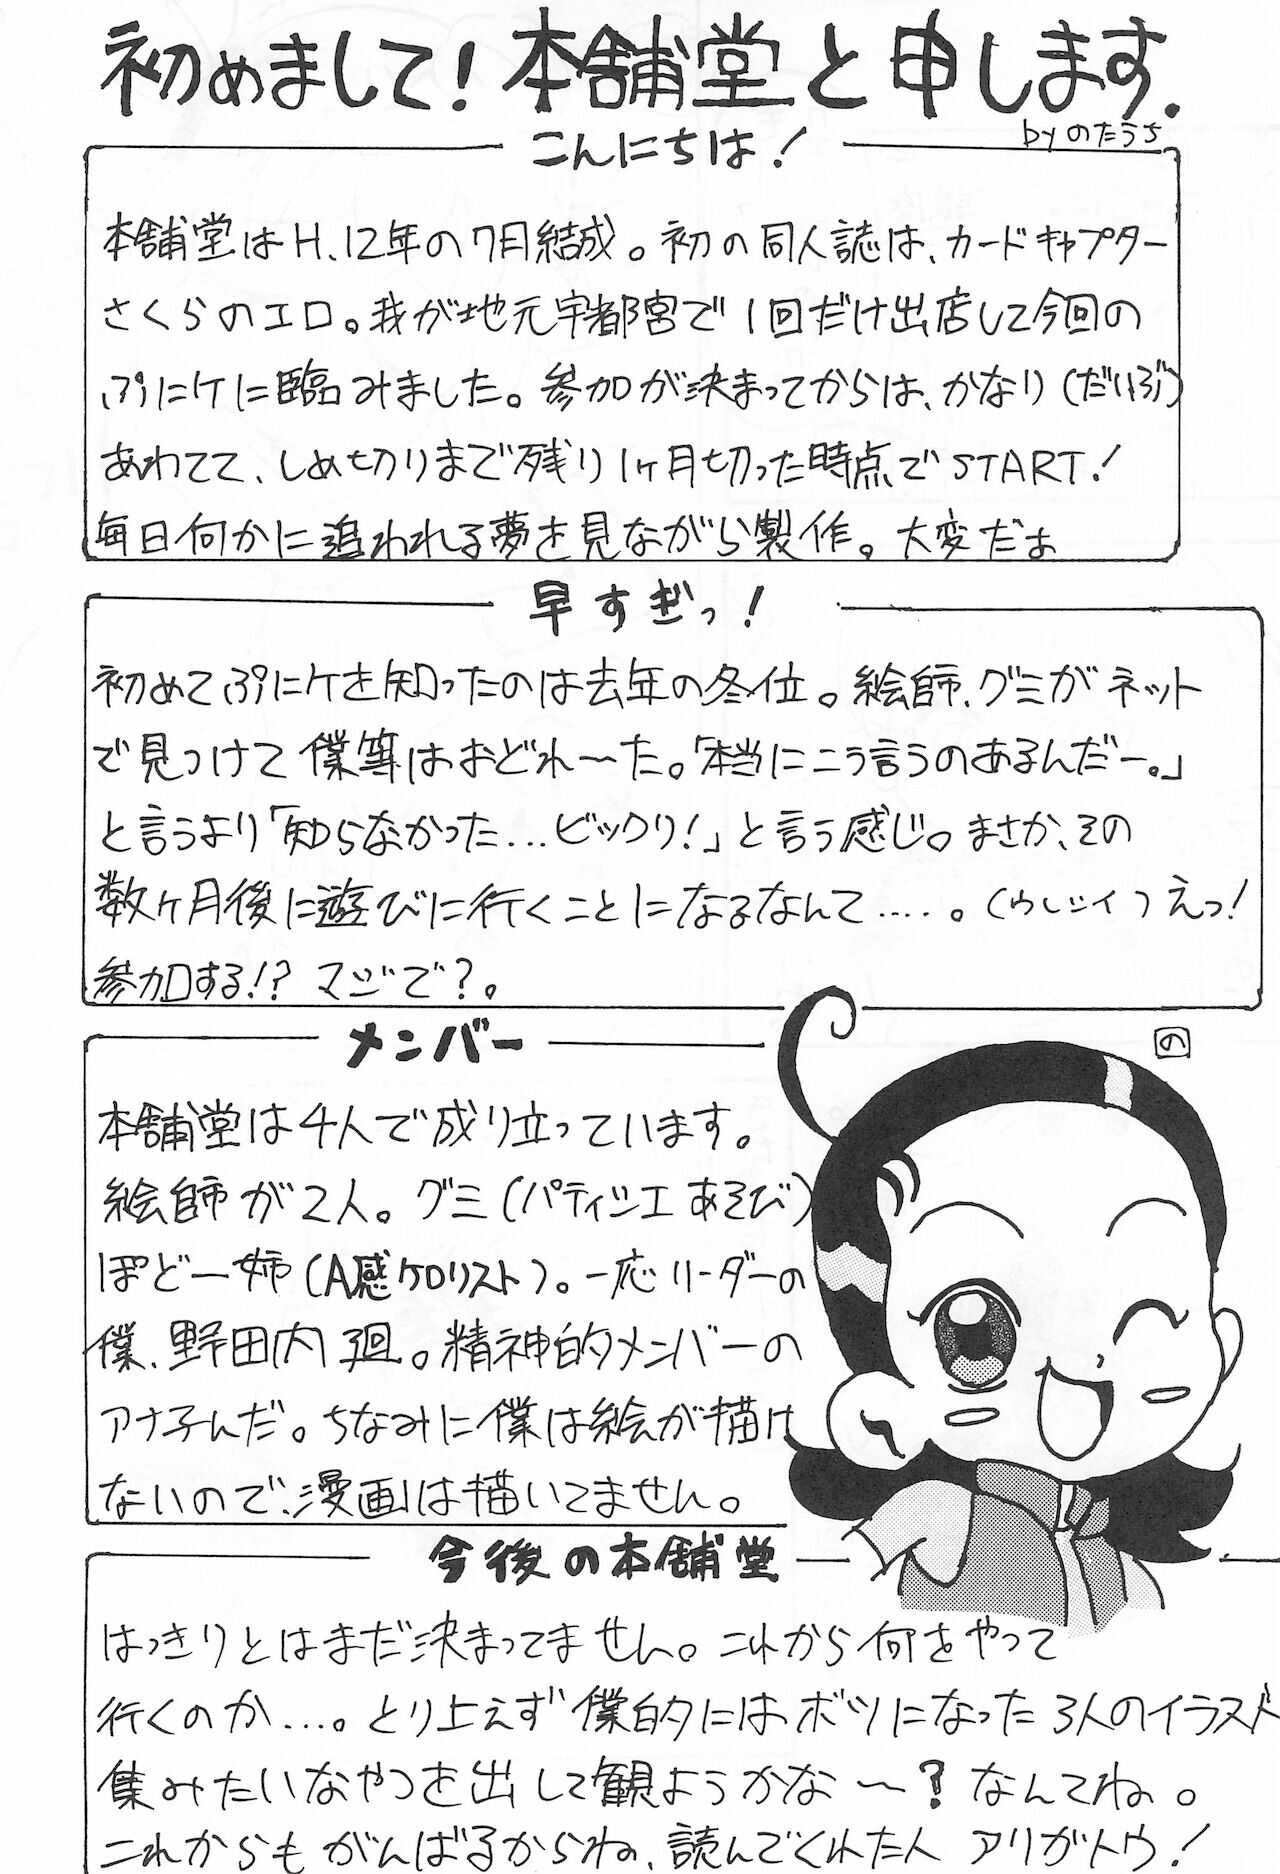 初めまして！本舗堂と申します．
by のたうち
こんにちは！
本舗堂はH、12年の7月結成。初の同人誌は、カードキャプター
さくらのエロ。我が地元宇都宮で1回だけ出店して今回の
ぷにケに臨みました。参加が決まってからは、かなり（だいぶ）
あわてて、しめ切りまで残り1ヶ月切った時点でSTART！
毎日何かに追われる夢を見ながら製作。大変だぁ
早すぎっ！
初めてぷにケを知ったのは去年の冬位。絵師、グミがネット
で見つけて僕等はおどれ〜た。「本当にこう言うのあるんだー。」
と言うより「知らなかった…ビックリ！」と言う感じ。まさか、その
数ヶ月後に遊びに行くことになるなんて…‥。（ウレシイ）えっ！
参加する！？マジで？。
メンバー
の
本舗堂は4人で成り立っています。
絵師が2人。グミ（パティシエあそび）
ぽどー姉（A感ケロリスト）。一応リーダーの
僕、野田内廻。精神的メンバーの
アナ子んだ。ちなみに僕は絵が描け
ないので、漫画は描いてません。
今後の本舗堂
はっきりとはまだ決まってません。これから何をやって
行くのか…。とり上えず僕的にはボツになった3人のイラスト
集みたいなやつを出して観ようかな〜？なんてね。
これからもがんばるからね、読んでくれた人アリガトウ！